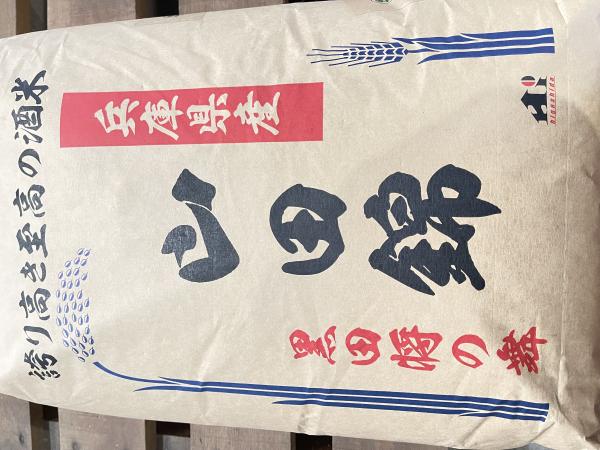 誇り高き至高の酒米
兵庫県産
山田錦
黒田将の舞